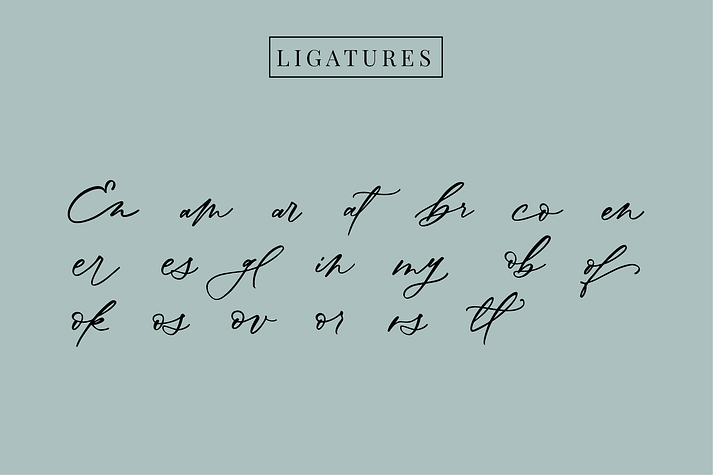 LIGATURES
En am ar at br co en
er es gl in my ob of
ok os ov or rs tt